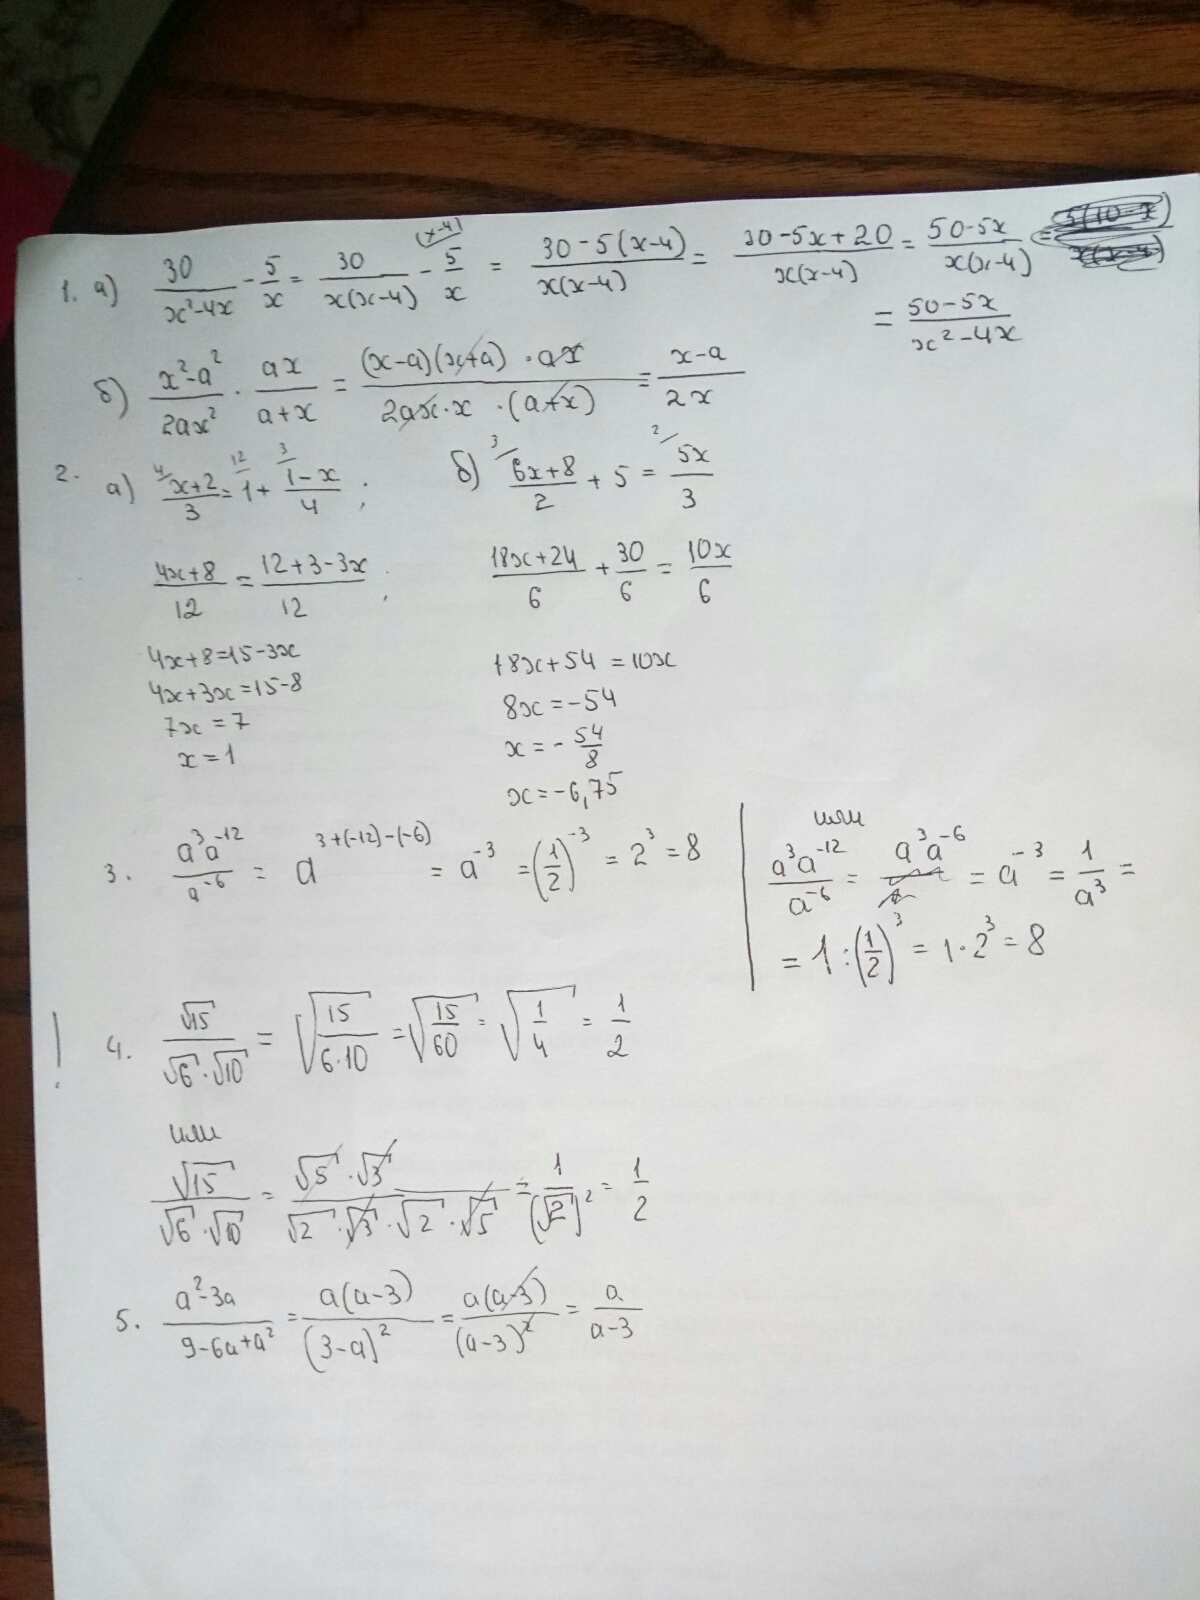 1. а) 30/(x²-4x) - 5/x = 30/(x(x-4)) - (x-4)/ 5/x = (30-5(x-4))/(x(x-4)) = (30-5x+20)/(x(x-4)) = (50-5x)/(x(x-4)) =
= (50-5x)/(x²-4x)
б) (x²-a²)/(2ax²) · ax/(a+x) = ((x-a)(x+a)·ax)/(2ax·x·(a+x)) = (x-a)/(2x)
2. а) 4/ (x+2)/3 = 12/ 1 + 3/ (1-x)/4 ; б) 3/ (6x+8)/2 + 5 = 2/ 5x/3
(4x+8)/12 = (12+3-3x)/12 ; (18x+24)/6 + 30/6 = 10x/6
4x+8=15-3x 18x+54=10x
4x+3x=15-8 8x=-54
7x=7 x=-54/8
x=1 x=-6,75
3. a³a⁻¹²/a⁻⁶ = a^(3+(-12)-(-6)) = a⁻³ = (1/2)⁻³ = 2³ = 8
или
a³a⁻¹²/a⁻⁶ = a³a⁻⁶ = a⁻³ = 1/a³ =
= 1:(1/2)³ = 1·2³ = 8
! 4. √15/(√6·√10) = √(15/(6·10)) = √(15/60) = √(1/4) = 1/2
или
√15/(√6·√10) = (√5·√3)/(√2·√3·√2·√5) = 1/(√2)² = 1/2
5. (a²-3a)/(9-6a+a²) = a(a-3)/(3-a)² = a(a-3)/(a-3)² = a/(a-3)